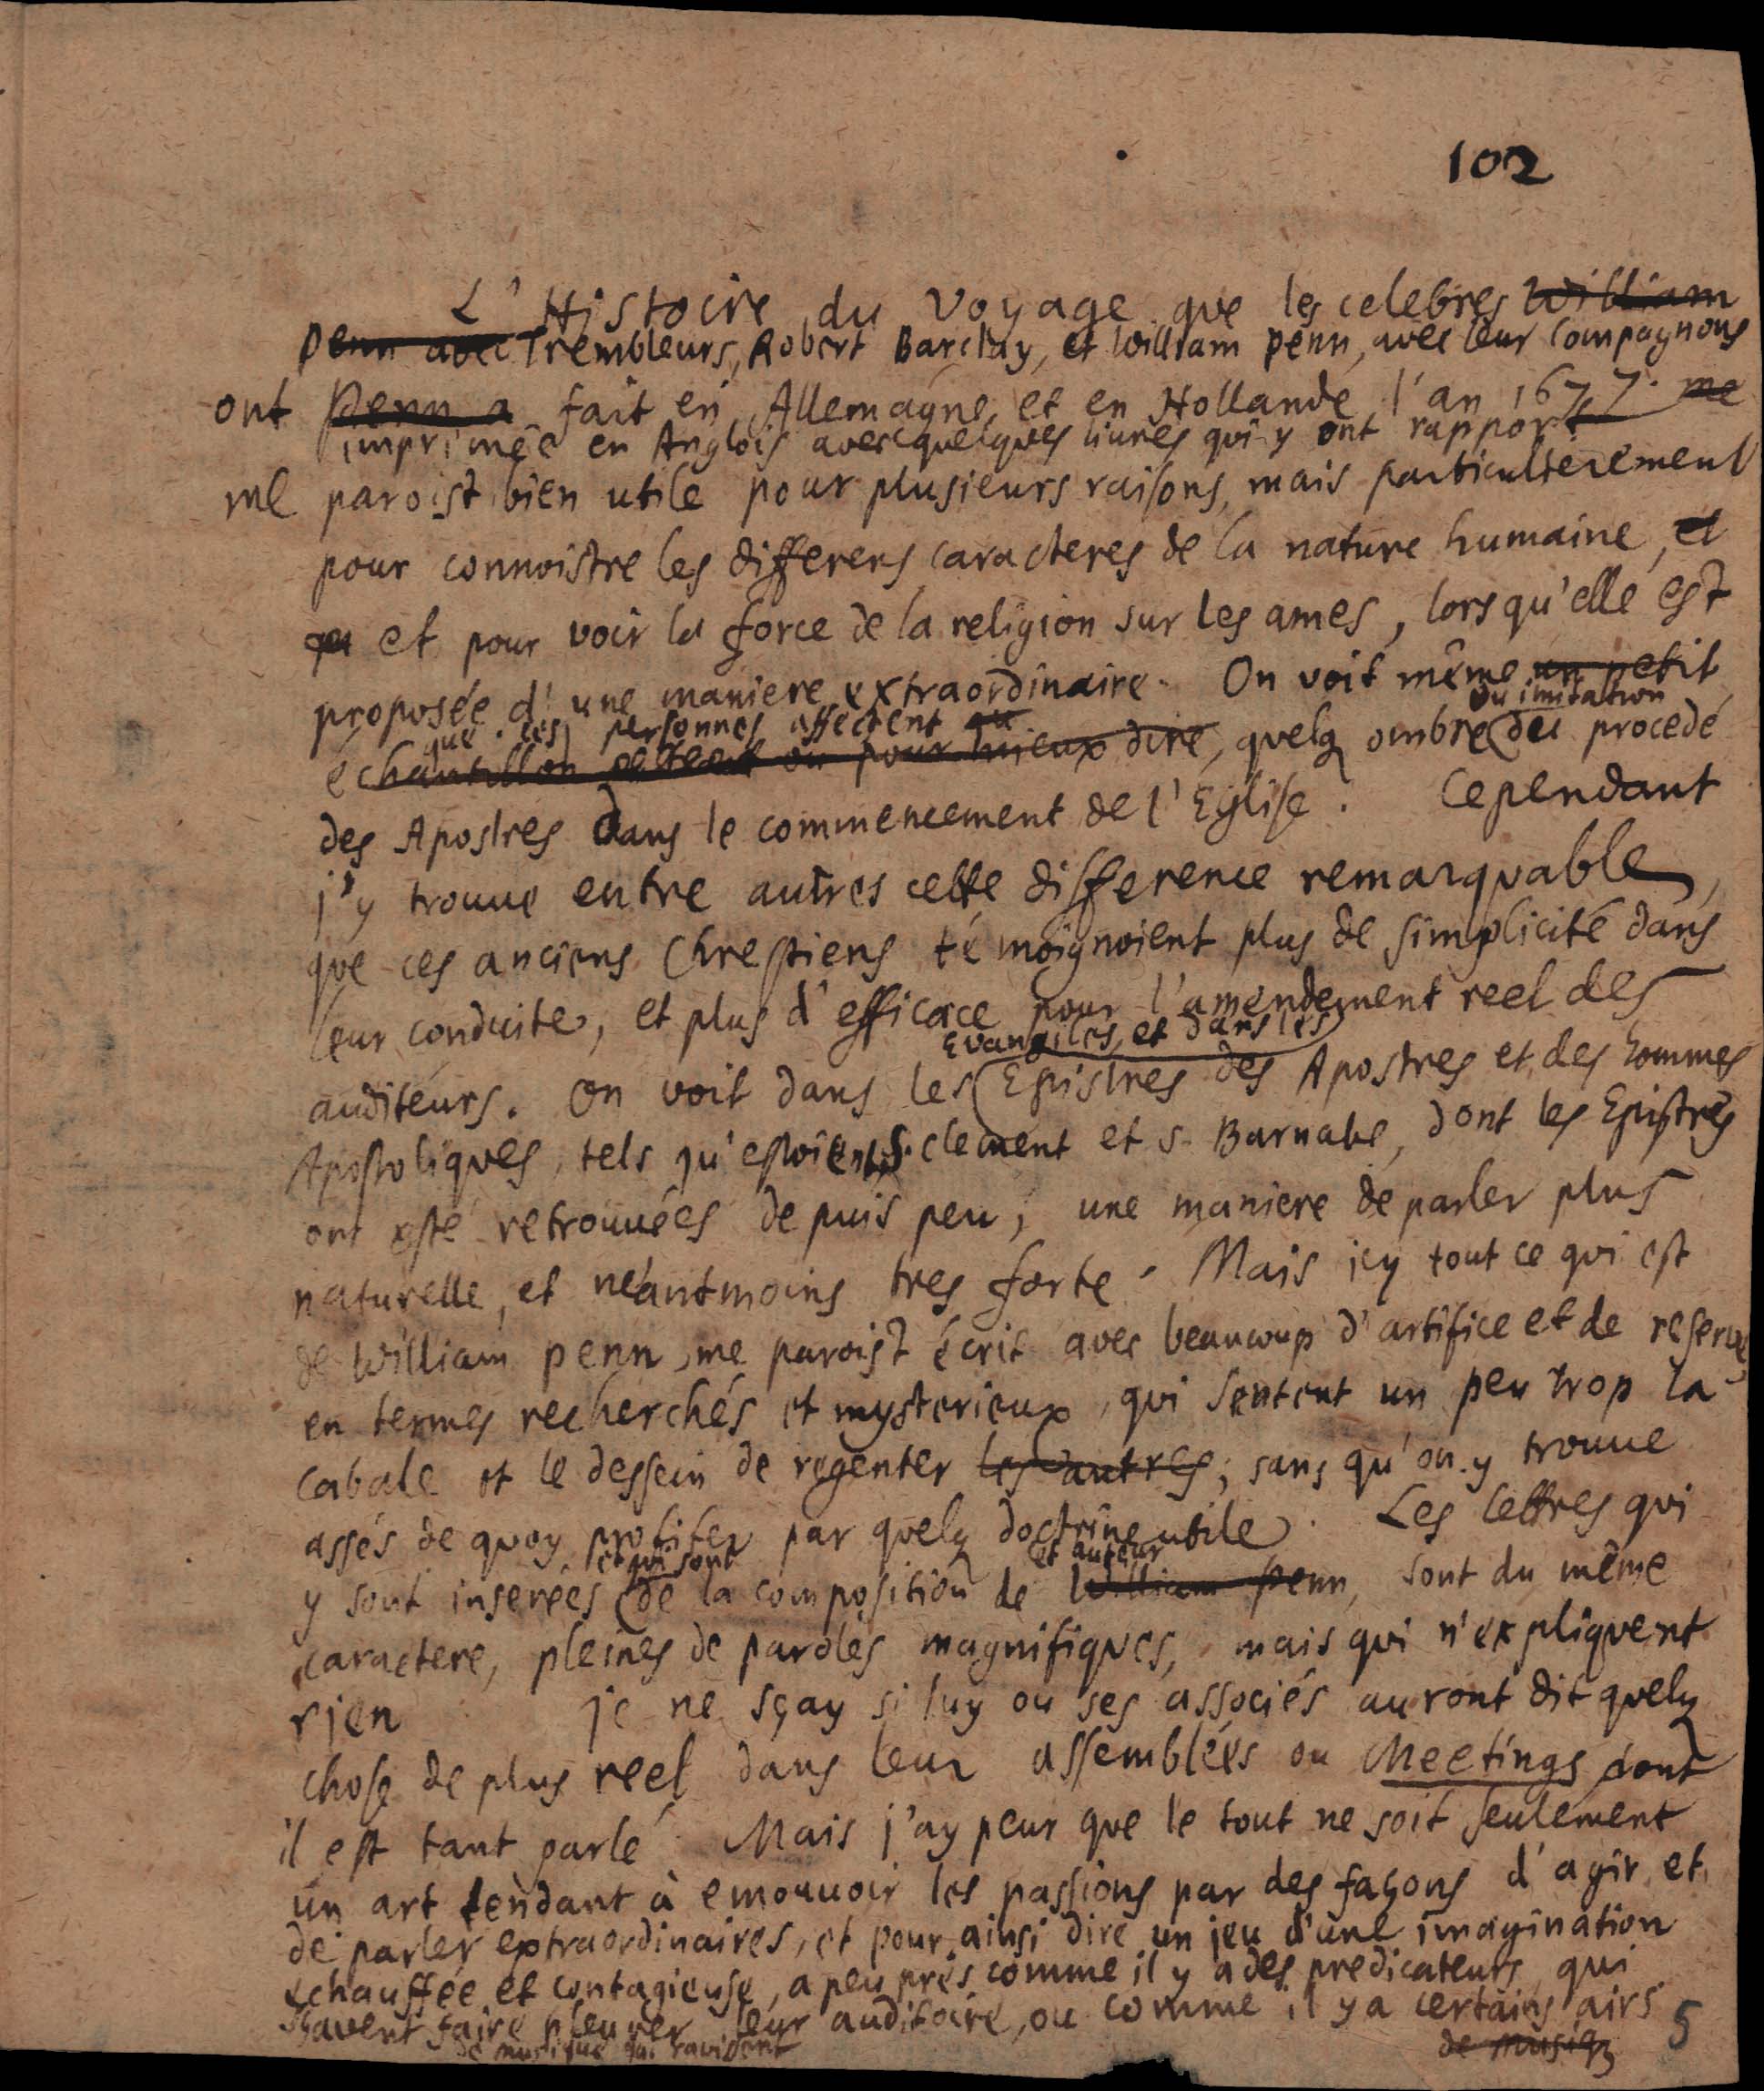 102
L'Histoire du Voyage que les celebres William
Penn avec Trembleurs, Robert Barclay, et William Penn, avec leur compagnons
ont Penn a fait en Allemagne, et en Hollande l'an 1677. me
imprimée en Anglois avec quelques livres qui y ont rapport
me paroist bien utile pour plusieurs raisons, mais particulierement
pour connoistre les differens caracteres de la nature humaine, et
et pour voir la force de la religion sur les ames, lorsqu'elle est
proposée d'une maniere extraordinaire. On voit même un petit
que ces personnes affectent ou ou imitation
échantillon ou pour mieux dire, quelq ombre du procedé
des Apostres dans le commencement de l'Eglise. Cependant
j'y trouve entre autres cette difference remarquable,
que ces anciens Chrestiens témoignoient plus de simplicité dans
leur conduite, et plus d'efficace pour l'amendement reel des
Evangiles, et dans les
auditeurs. On voit dans les Epistres des Apostres et des hommes
Apostoliques, tels qu'estoient S. Clement et S. Barnabe, dont les Epistres
ont esté retrouvées depuis peu, une maniere de parler plus
naturelle, et neantmoins tres forte. Mais icy tout ce qui est
de William Penn, me paroist écrit avec beaucoup d'artifice et de reserve,
en termes recherchés et mysterieux, qui sentent un peu trop la
cabale et le dessein de regenter les autres, sans qu'on y trouve
assés de quoy profiter par quelq doctrine utile. Les lettres qui
et qui sont cet auteur
y sont inserées de la composition de William Penn, sont du même
caractere, pleines de paroles magnifiques, mais qui n'expliquent
rien je ne sçay si luy ou ses associés auront dit quelq
chose de plus reel dans leur assemblées ou Meetings dont
il est tant parlé. Mais j'ay peur que le tout ne soit seulement
un art tendant à emouvoir les passions par des façons d'agir et
de parler extraordinaires, et pour ainsi dire un jeu d'une imagination
echauffée et contagieuse, a peu près comme il y a des predicateurs qui
sçavent faire pleurer leur auditoire, ou comme il y a certains airs
de musique qui ravissent de musiq
5